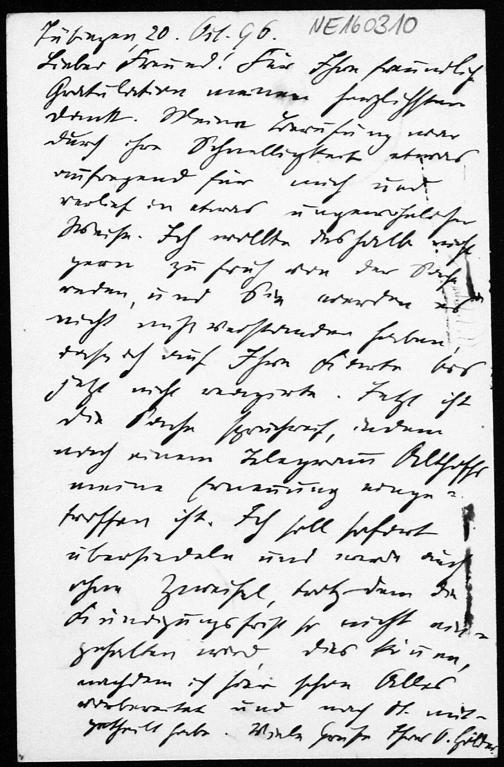 NE160310
Tübingen, 20. Oct. 96.
Lieber Freund! Für Ihre freundliche
Gratulation meinen herzlichsten
Dank. Meine Berufung war
durch ihre Schnelligkeit etwas
aufregend für mich und
verlief in etwas ungewöhnlicher
Weise. Ich wollte deshalb nicht
gern zu früh von der Sache
reden, und Sie werden es
nicht miß verstanden haben,
dass ich auf Ihre Karte bis
jetzt nicht reagirte. Jetzt ist
die Sache spruchreif, indem
nach einem Telegramm Althoffs
meine Ernennung einge-
troffen ist. Ich soll sofort
übersiedeln und werde auch
ohne Zweifel, trotz dem die
Kündigungsfrist so nicht ein-
gehalten wird, dies können,
nachdem ich hier schon Alles
vorbereitet und nach St. mit-
getheilt habe. Viele Grüße Ihr O. Hölder.